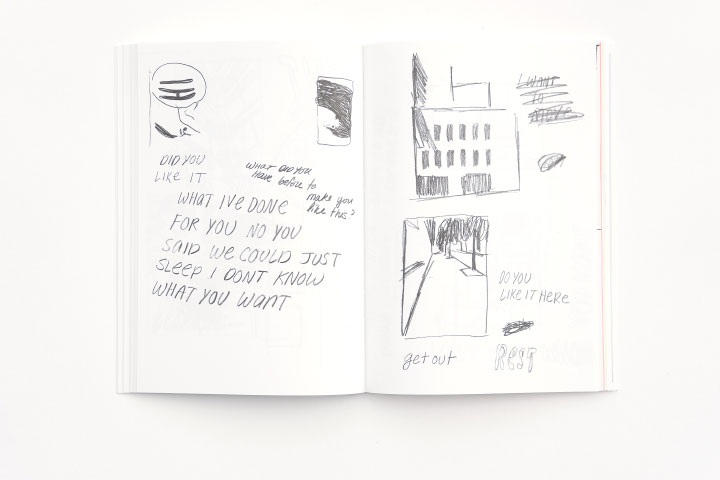 DID YOU
LIKE IT
WHAT DID YOU
HAVE before to
make you
like this?
WHAT IVE DONE
FOR YOU NO YOU
SAID WE COULD JUST
SLEEP I DONT KNOW
WHAT YOU WANT
I WANT
TO
MOVE
DO YOU
LIKE IT HERE
get out
REST